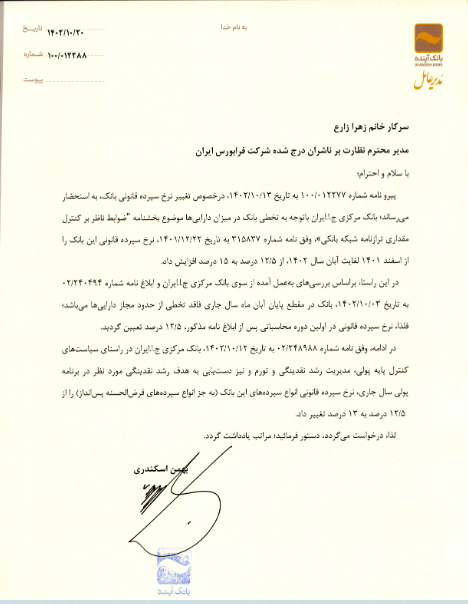 به نام خدا
تاریخ ۱۴۰۲/۱۰/۲۰
شماره ۱۰۰/۰۱۲۳۸۸
پیوست
بانک آینده
AYANDEH BANK
مدیرعامل
سرکار خانم زهرا زارع
مدیر محترم نظارت بر ناشران درج شده شرکت فرابورس ایران
با سلام و احترام؛
پیرو نامه شماره ۱۰۰/۰۱۲۲۷۷ به تاریخ ۱۴۰۲/۱۰/۱۳، درخصوص تغییر نرخ سپرده قانونی بانک، به استحضار
می‌رساند؛ بانک مرکزی ج.ا.ایران باتوجه به تخطی بانک در میزان دارایی‌ها موضوع بخشنامه "ضوابط ناظر بر کنترل
مقداری ترازنامه شبکه بانکی"، وفق نامه شماره ۳۱۵۸۳۷ به تاریخ ۱۴۰۱/۱۲/۲۲، نرخ سپرده قانونی این بانک را از
اسفند ۱۴۰۱ لغایت آبان سال ۱۴۰۲، از ۱۲/۵ درصد به ۱۵ درصد افزایش داد.
در این راستا، براساس بررسی‌های به‌عمل آمده از سوی بانک مرکزی ج.ا.ایران و ابلاغ نامه شماره ۰۲/۲۴۰۴۹۴
به تاریخ ۱۴۰۲/۱۰/۰۳، بانک در مقطع پایان آبان ماه سال جاری فاقد تخطی از حدود مجاز دارایی‌ها می‌باشد؛
فلذا، نرخ سپرده قانونی در اولین دوره محاسباتی پس از ابلاغ نامه مذکور، ۱۲/۵ درصد تعیین گردید.
در ادامه، وفق نامه شماره ۰۲/۲۴۸۹۸۸ به تاریخ ۱۴۰۲/۱۰/۱۲، بانک مرکزی ج.ا.ایران در راستای سیاست‌های
کنترل پایه پولی، مدیریت رشد نقدینگی و تورم و نیز دست‌یابی به هدف رشد نقدینگی مورد نظر در برنامه
پولی سال جاری، نرخ سپرده قانونی انواع سپرده‌های این بانک (به جز انواع سپرده‌های قرض‌الحسنه پس‌انداز) را از
۱۲/۵ درصد به ۱۳ درصد تغییر داد.
لذا، درخواست می‌گردد، دستور فرمائید؛ مراتب یادداشت گردد.
بهمن اسکندری
بانک آینده